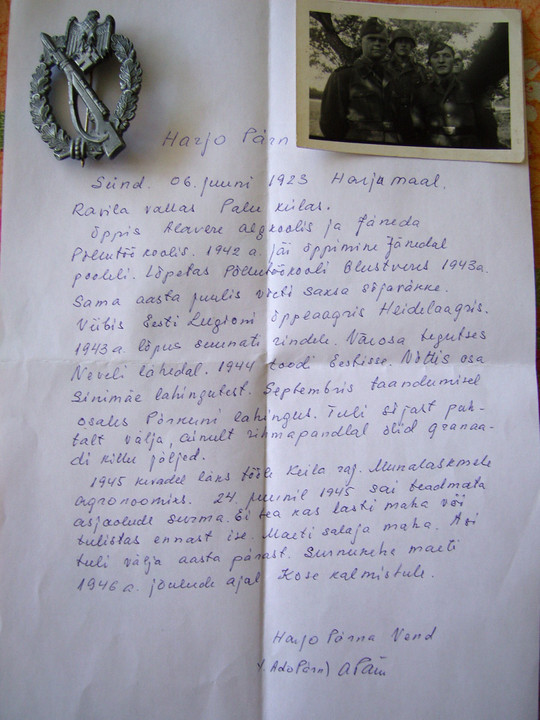 Harjo Pärn
Sünd. 06. juuni 1923 Harjumaal.
Ravila vallas Palu külas.
Õppis Alavere algkoolis ja Jäneda
Põllutöökoolis. 1942 a. jäi õppimine Jänedal
pooleli. Lõpetas Põllutöökooli Olustveres 1943 a.
Sama aasta juulis võeti saksa sõjaväkke.
Viibis Eesti Leegioni õppelaagris Heidelaagris.
1943 a. lõpus suunati rindele. Väeosa tegutses
Neveli lähedal. 1944 toodi Eestisse. Võttis osa
Sinimäe lahingutest. Septembris taandumisel
osales Porkuni lahingus. Tuli sõjast puh-
talt välja, ainult rihmapandlal olid granaa-
di killu jäljed.
1945 kevadel läks tööle Keila raj. Munalaskmele
agronoomiks. 24. juunil 1945 sai teadmata
asjaoludel surma. Ei tea kas lasti maha või
tulistas ennast ise. Maeti salaja maha. Asi
tuli välja aasta pärast. Surnukeha maeti
1946 a. jõulude ajal Kose kalmistule.
Harjo Pärna Vend
(Ado Pärn) APärn